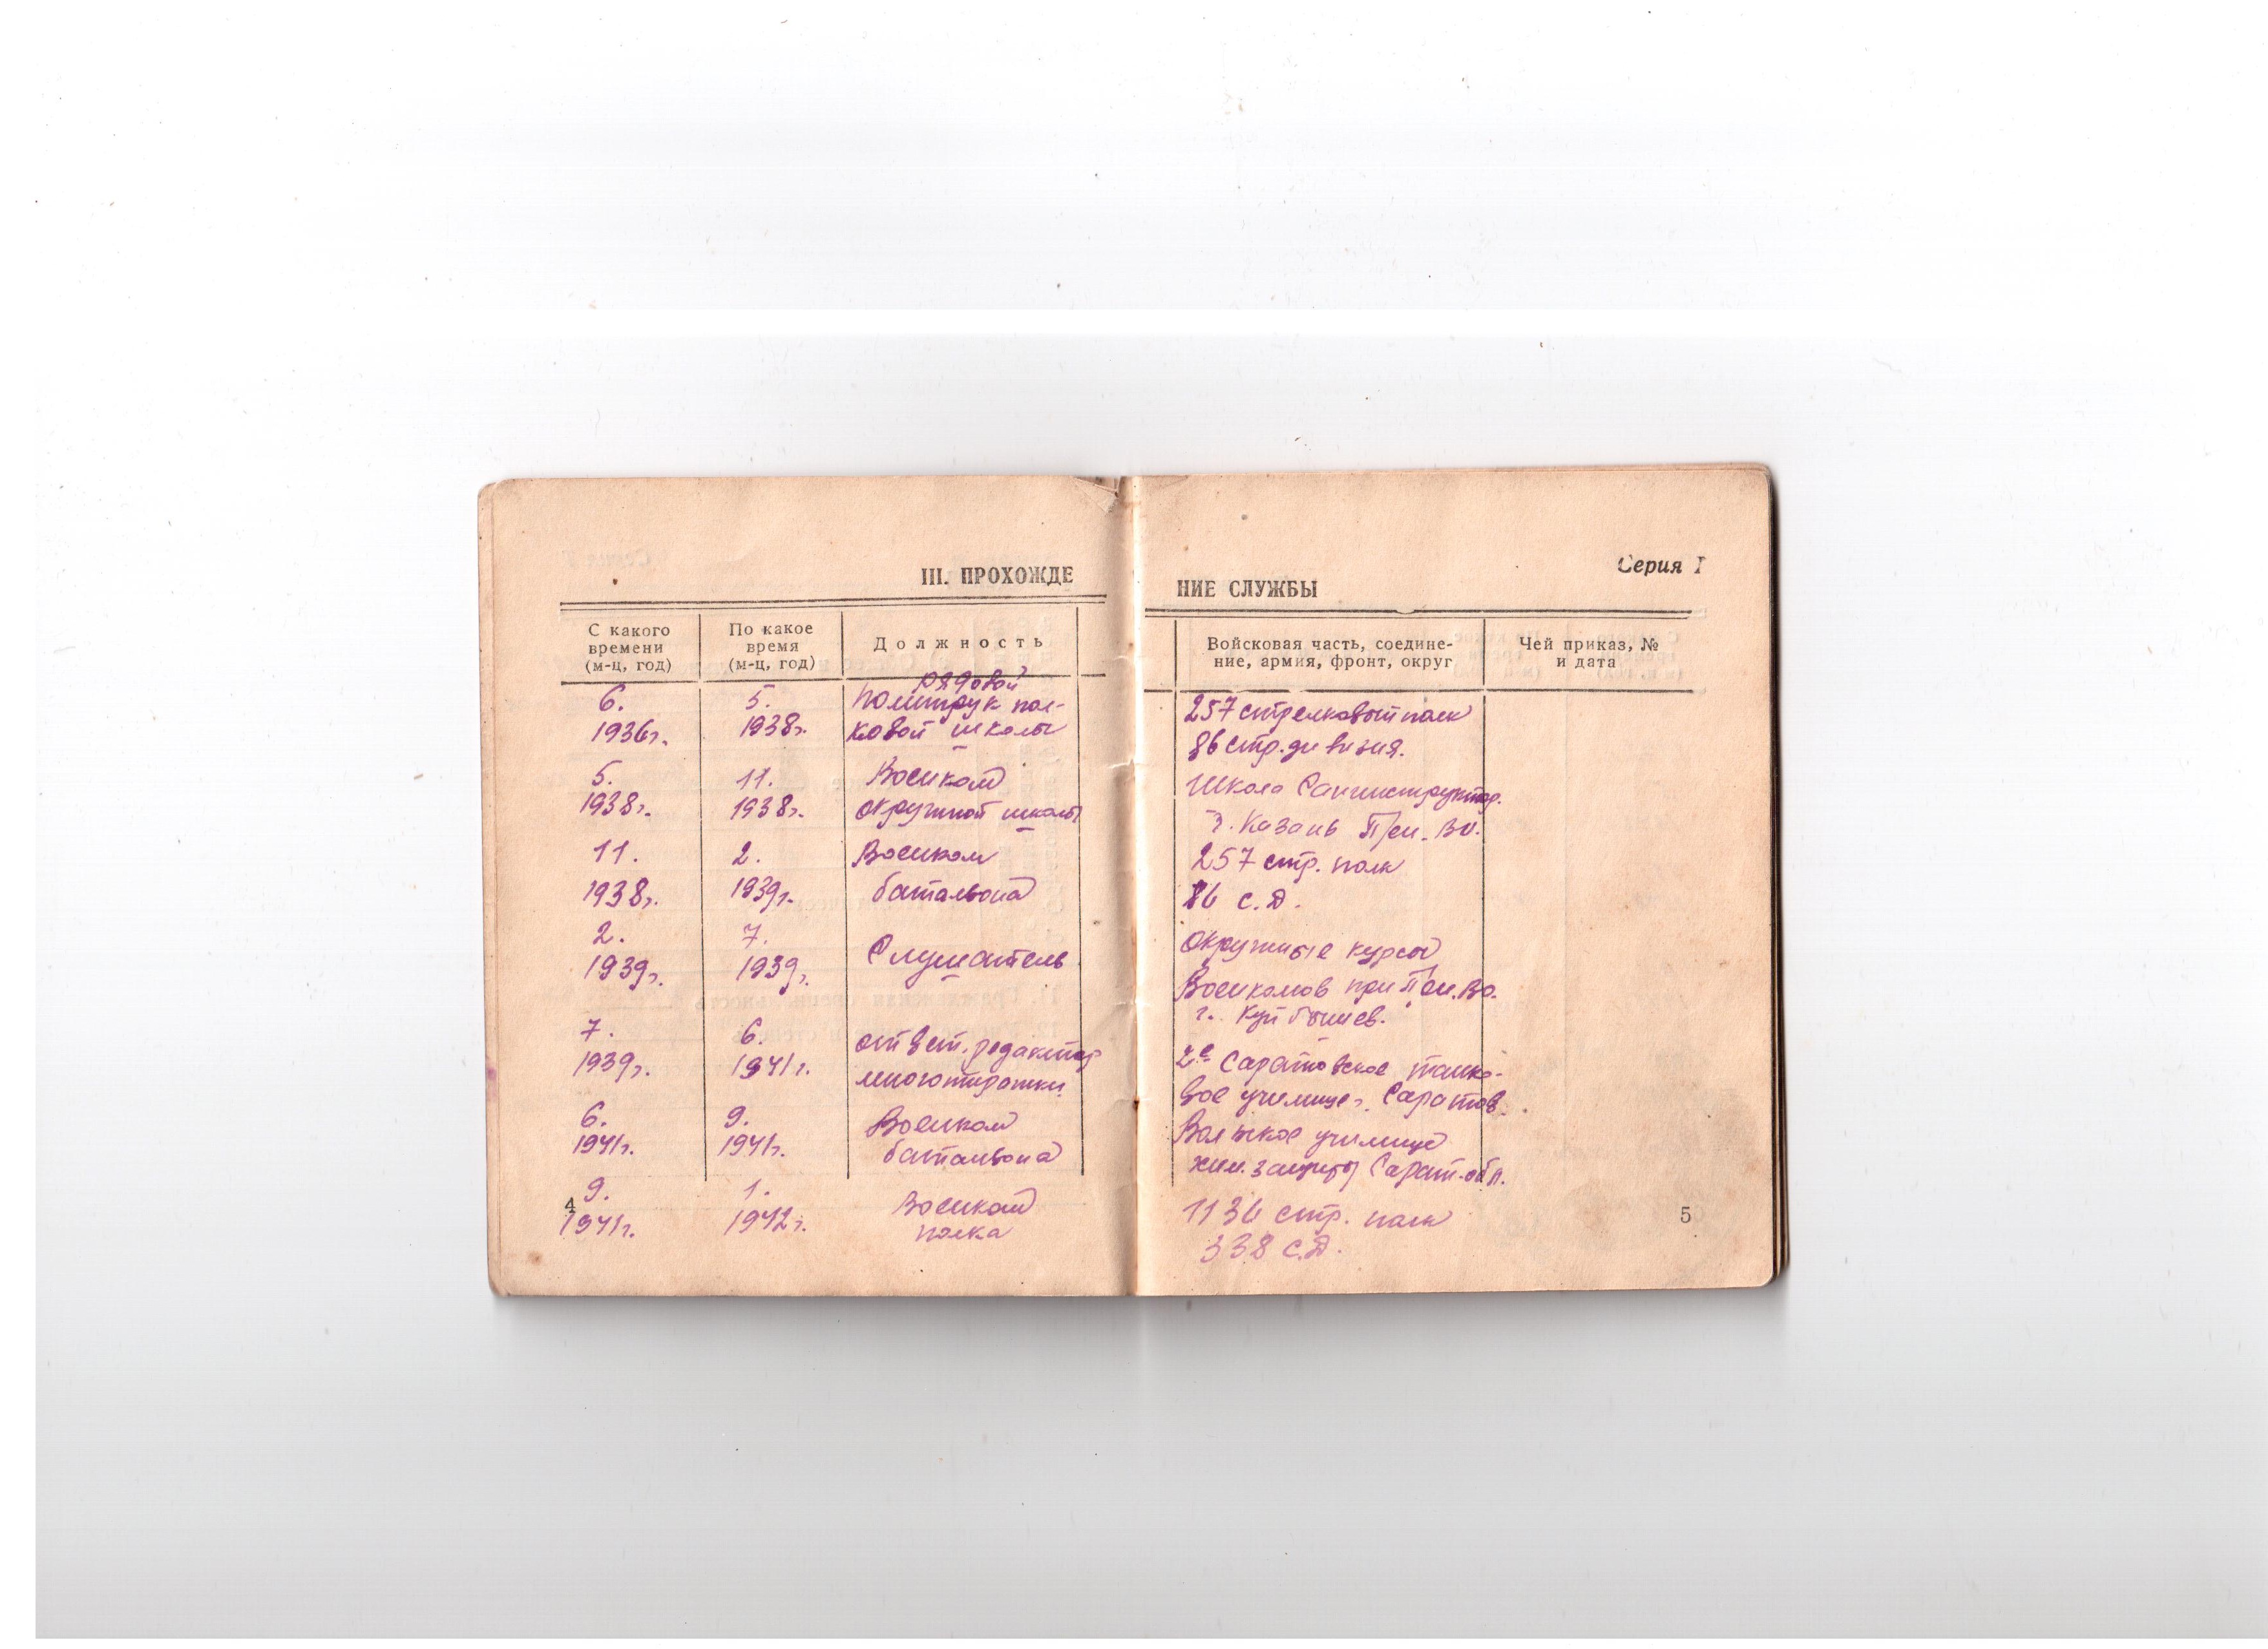 III. ПРОХОЖДЕ
С какого времени (м-ц, год)
По какое время (м-ц, год)
Должность
рядовой
6. 5. политрук пол-
1936г. 1938г. ковой школы
5. 11. Военком
1938г. 1938г. окружной школы
11. 2. Военком
1938г. 1939г. батальона
2. 7. Слушатель
1939г. 1939г.
7. 6. ответ. редактор
1939г. 1941г. многотиражки
6. 9. Военком
1941г. 1941г. батальона
9. 1. Военком
1941г. 1942г. полка
4
Серия I
НИЕ СЛУЖБЫ
Войсковая часть, соедине-
ние, армия, фронт, округ
Чей приказ, №
и дата
257 стрелковый полк
86 стр. дивизия.
Школа Санинструктор.
г. Казань При. ВО.
257 стр. полк
86 с. Д.
окружные курсы
Военкомов при При. ВО.
г. Куйбышев.
2е Саратовское танко-
вое училище г. Саратов.
Вольское училище
хим. защиты Сарат. обл.
1136 стр. полк
338 с. Д.
5